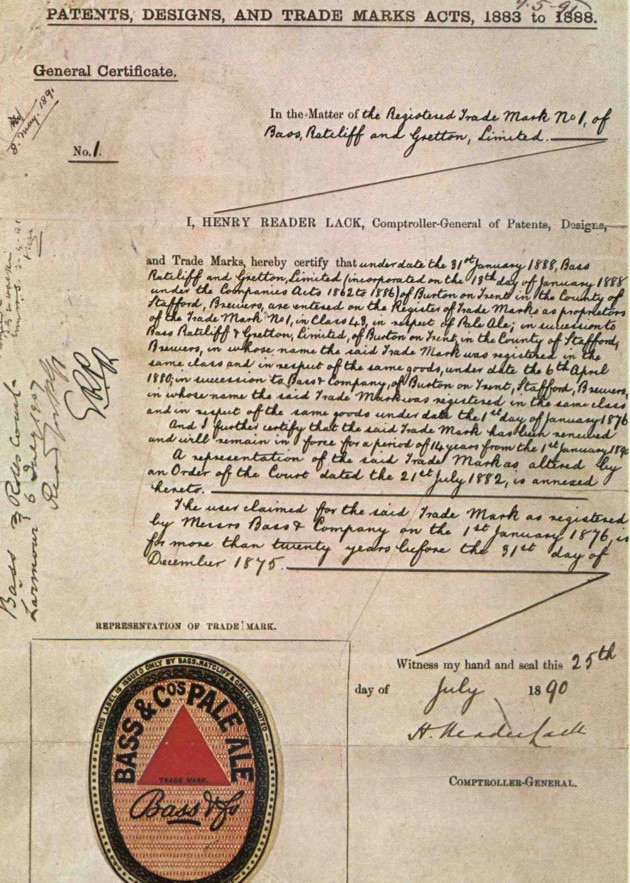 PATENTS, DESIGNS, AND TRADE MARKS ACTS, 1883 to 1888.
General Certificate.
8. May. 1891
No. 1.
In the Matter of the Registered Trade Mark No 1, of
Bass, Ratcliff and Gretton, Limited.
I, HENRY READER LACK, Comptroller-General of Patents, Designs,
and Trade Marks, hereby certify that under date the 31st January 1888, Bass
Ratcliff and Gretton, Limited (incorporated on the 13th day of January 1888
under the Companies Acts 1862 to 1886) of Burton on Trent in the County of
Stafford, Brewers, are entered on the Register of Trade Marks as proprietors
of the Trade Mark No 1, in Class 43, in respect of Pale Ale; in succession to
Bass Ratcliff & Gretton, Limited, of Burton on Trent, in the County of Stafford,
Brewers, in whose name the said Trade Mark was registered in the
same class and in respect of the same goods, under date the 6th April
1880; in succession to Bass & Company, of Burton on Trent, Stafford, Brewers,
in whose name the said Trade Mark was registered in the same class
and in respect of the same goods under date the 1st day of January 1876
And I further certify that the said Trade Mark has been renewed
and will remain in force for a period of 14 years from the 1st January 1890
A representation of the said Trade Mark as altered by
an Order of the Court dated the 21st July 1882, is annexed
hereto.
The user claimed for the said Trade Mark as registered
by Messrs Bass & Company on the 1st January 1876, is
for more than twenty years before the 31st day of
December 1875.
REPRESENTATION OF TRADE MARK.
THIS LABEL IS ISSUED ONLY BY BASS, RATCLIFF & GRETTON LIMITED
BASS & COS PALE ALE
TRADE MARK.
Bass & Co
Witness my hand and seal this 25th
day of July 1890
H. Reader Lack
COMPTROLLER-GENERAL.